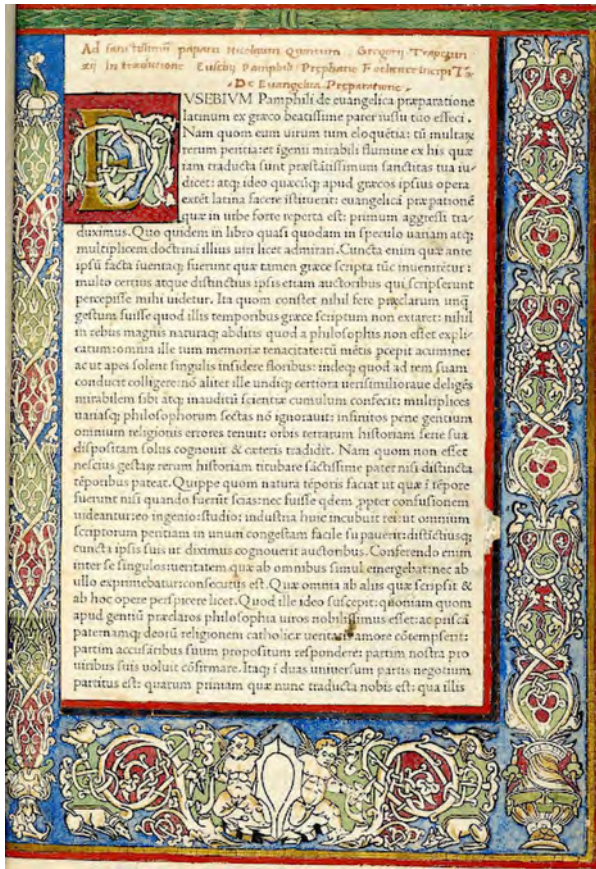 Ad sanctissimū papam Nicolaum Quintum . Gregorij Trapezun
zij In traductione Eusebij Pamphili Prephatio Foeliciter incipit
De Euangelica Preparatione
EVSEBIVM Pamphili de euangelica præparatione
latinum ex græco beatissime pater iussu tuo effeci .
Nam quom eum uirum tum eloquētia: tū multaꝝ
rerum peritia: et īgenii mirabili flumine ex his quæ
iam traducta sunt præstātissimum sanctitas tua iu-
dicet: atq; ideo quæcūq; apud græcos ipsius opera
extēt latina facere īstituerit: euangelicā præpationē
quæ in urbe forte reperta est: primum aggressi tra-
duximus. Quo quidem in libro quasi quodam in speculo uariam atq;
multiplicem doctrinā illius uiri licet admirari. Cuncta enim quæ ante
ipsū facta īuentaq; fuerunt quæ tamen græce scripta tūc inuenirētur:
multo certius atque distinctius ipsis etiam auctoribus qui scripserunt
percepisse mihi uidetur. Ita quom constet nihil fere præclarum unq̄
gestum fuisse quod illis temporibus græce scriptum non extaret: nihil
in rebus magnis naturaq; abditis quod a philosophis non esset expli-
catum: omnia ille tum memoriæ tenacitate: tū mētis pcepit acumine:
ac ut apes solent singulis insidere floribus: indeq; quod ad rem suam
conducit colligere: nō aliter ille undiq; certiora uerisimilioraue deligēs
mirabilem sibi atq; inauditū scientiæ cumulum confecit: multiplices
uariasq; philosophorum sectas nō ignorauit: infinitos pene gentium
omnium religionis errores tenuit: orbis terrarum historiam serie sua
dispositam solus cognouit & cæteris tradidit. Nam quom non esset
nescius gestaꝝ rerum historiam titubare sāctissime pater nisi distincta
tēporibus pateat. Quippe quom natura tēporis faciat ut quæ ī tēpore
fuerunt nisi quando fuerūt scias: nec fuisse qdem ppter confusionem
uideantur: eo ingenio: studio: industria huic incubuit rei: ut omnium
scriptorum peritiam in unum congestam facile supauerit: distīctiusq;
cuncta ipsis suis ut diximus cognouerit auctoribus. Conferendo enim
inter se singulos: ueritatem quæ ab omnibus simul emergebat: nec ab
ullo exprimebatur: consecutus est. Quæ omnia ab aliis quæ scripsit &
ab hoc opere perspicere licet. Quod ille ideo suscepit: quoniam quom
apud gentiū præclaros philosophia uiros nobilissimus esset: ac priscā
paternamq; deorū religionem catholicæ ueritatis amore cōtempserit:
partim accusātibus suum propositum respondere: partim nostra pro
uiribus suis uoluit cōfirmare. Itaq; ī duas uniuersum partis negotium
partitus est: quarum primam quæ nunc traducta nobis est: qua illis